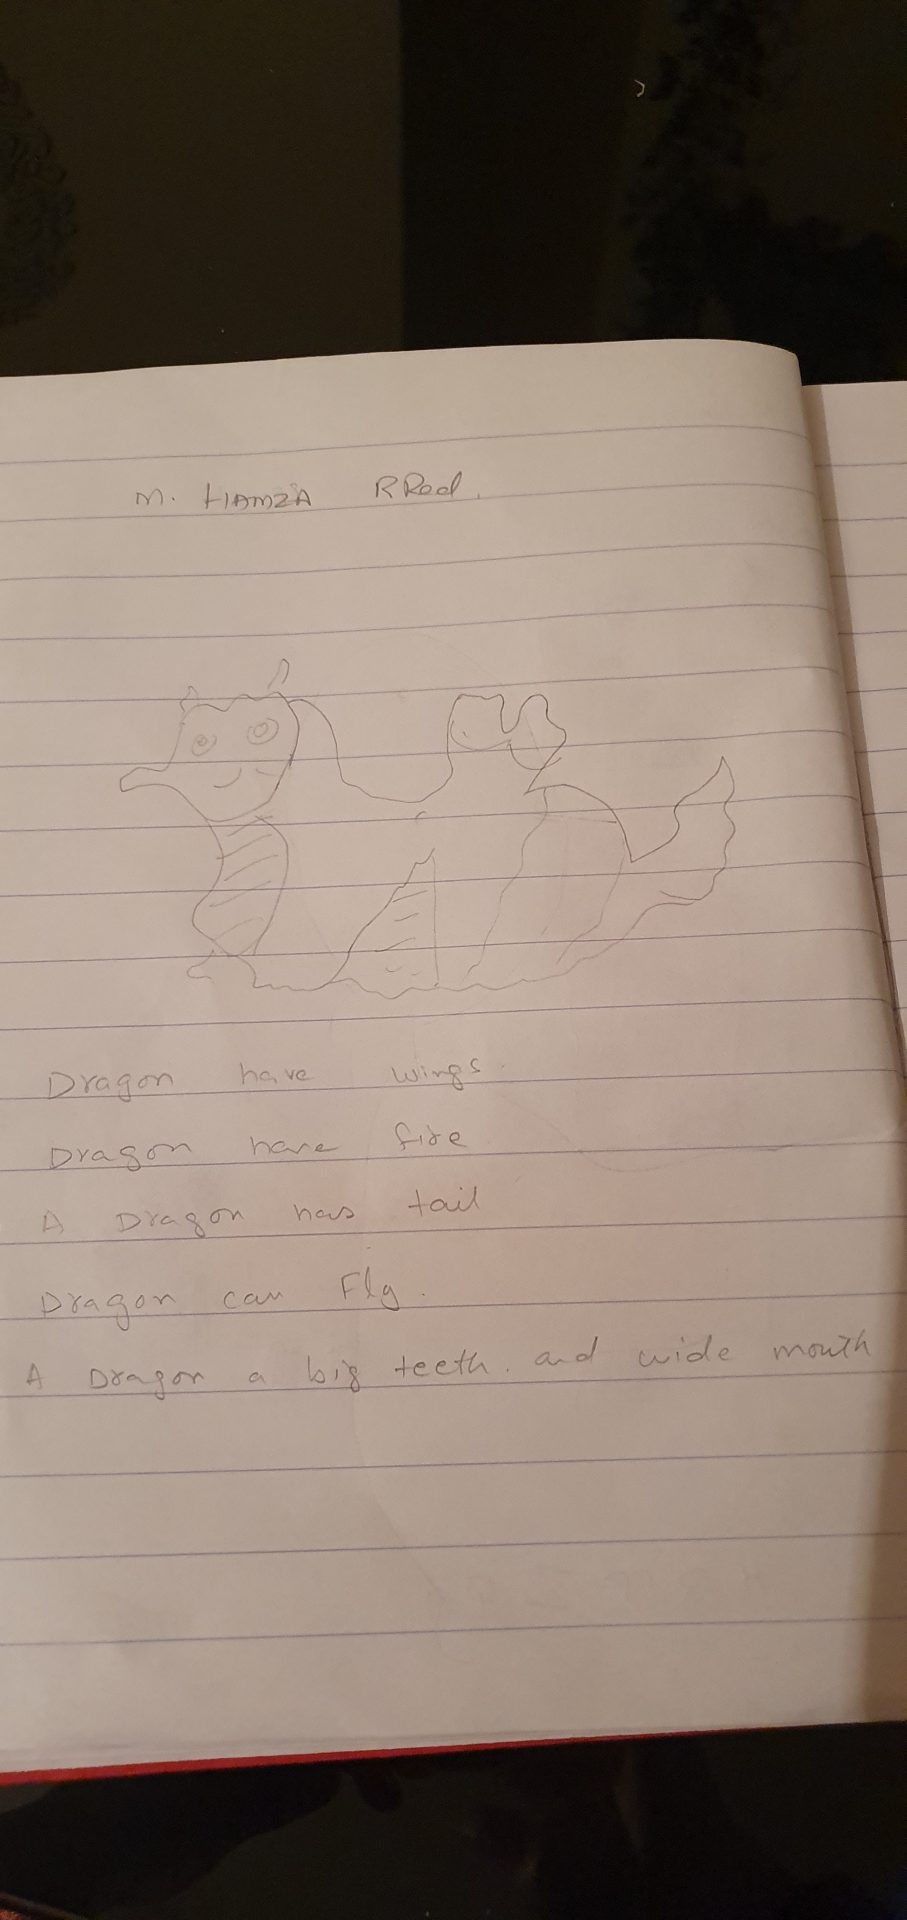 M. HAMZA RRed.
Dragon have wings.
Dragon have fire
A Dragon has tail
Dragon can Fly.
A Dragon a big teeth. and wide mouth